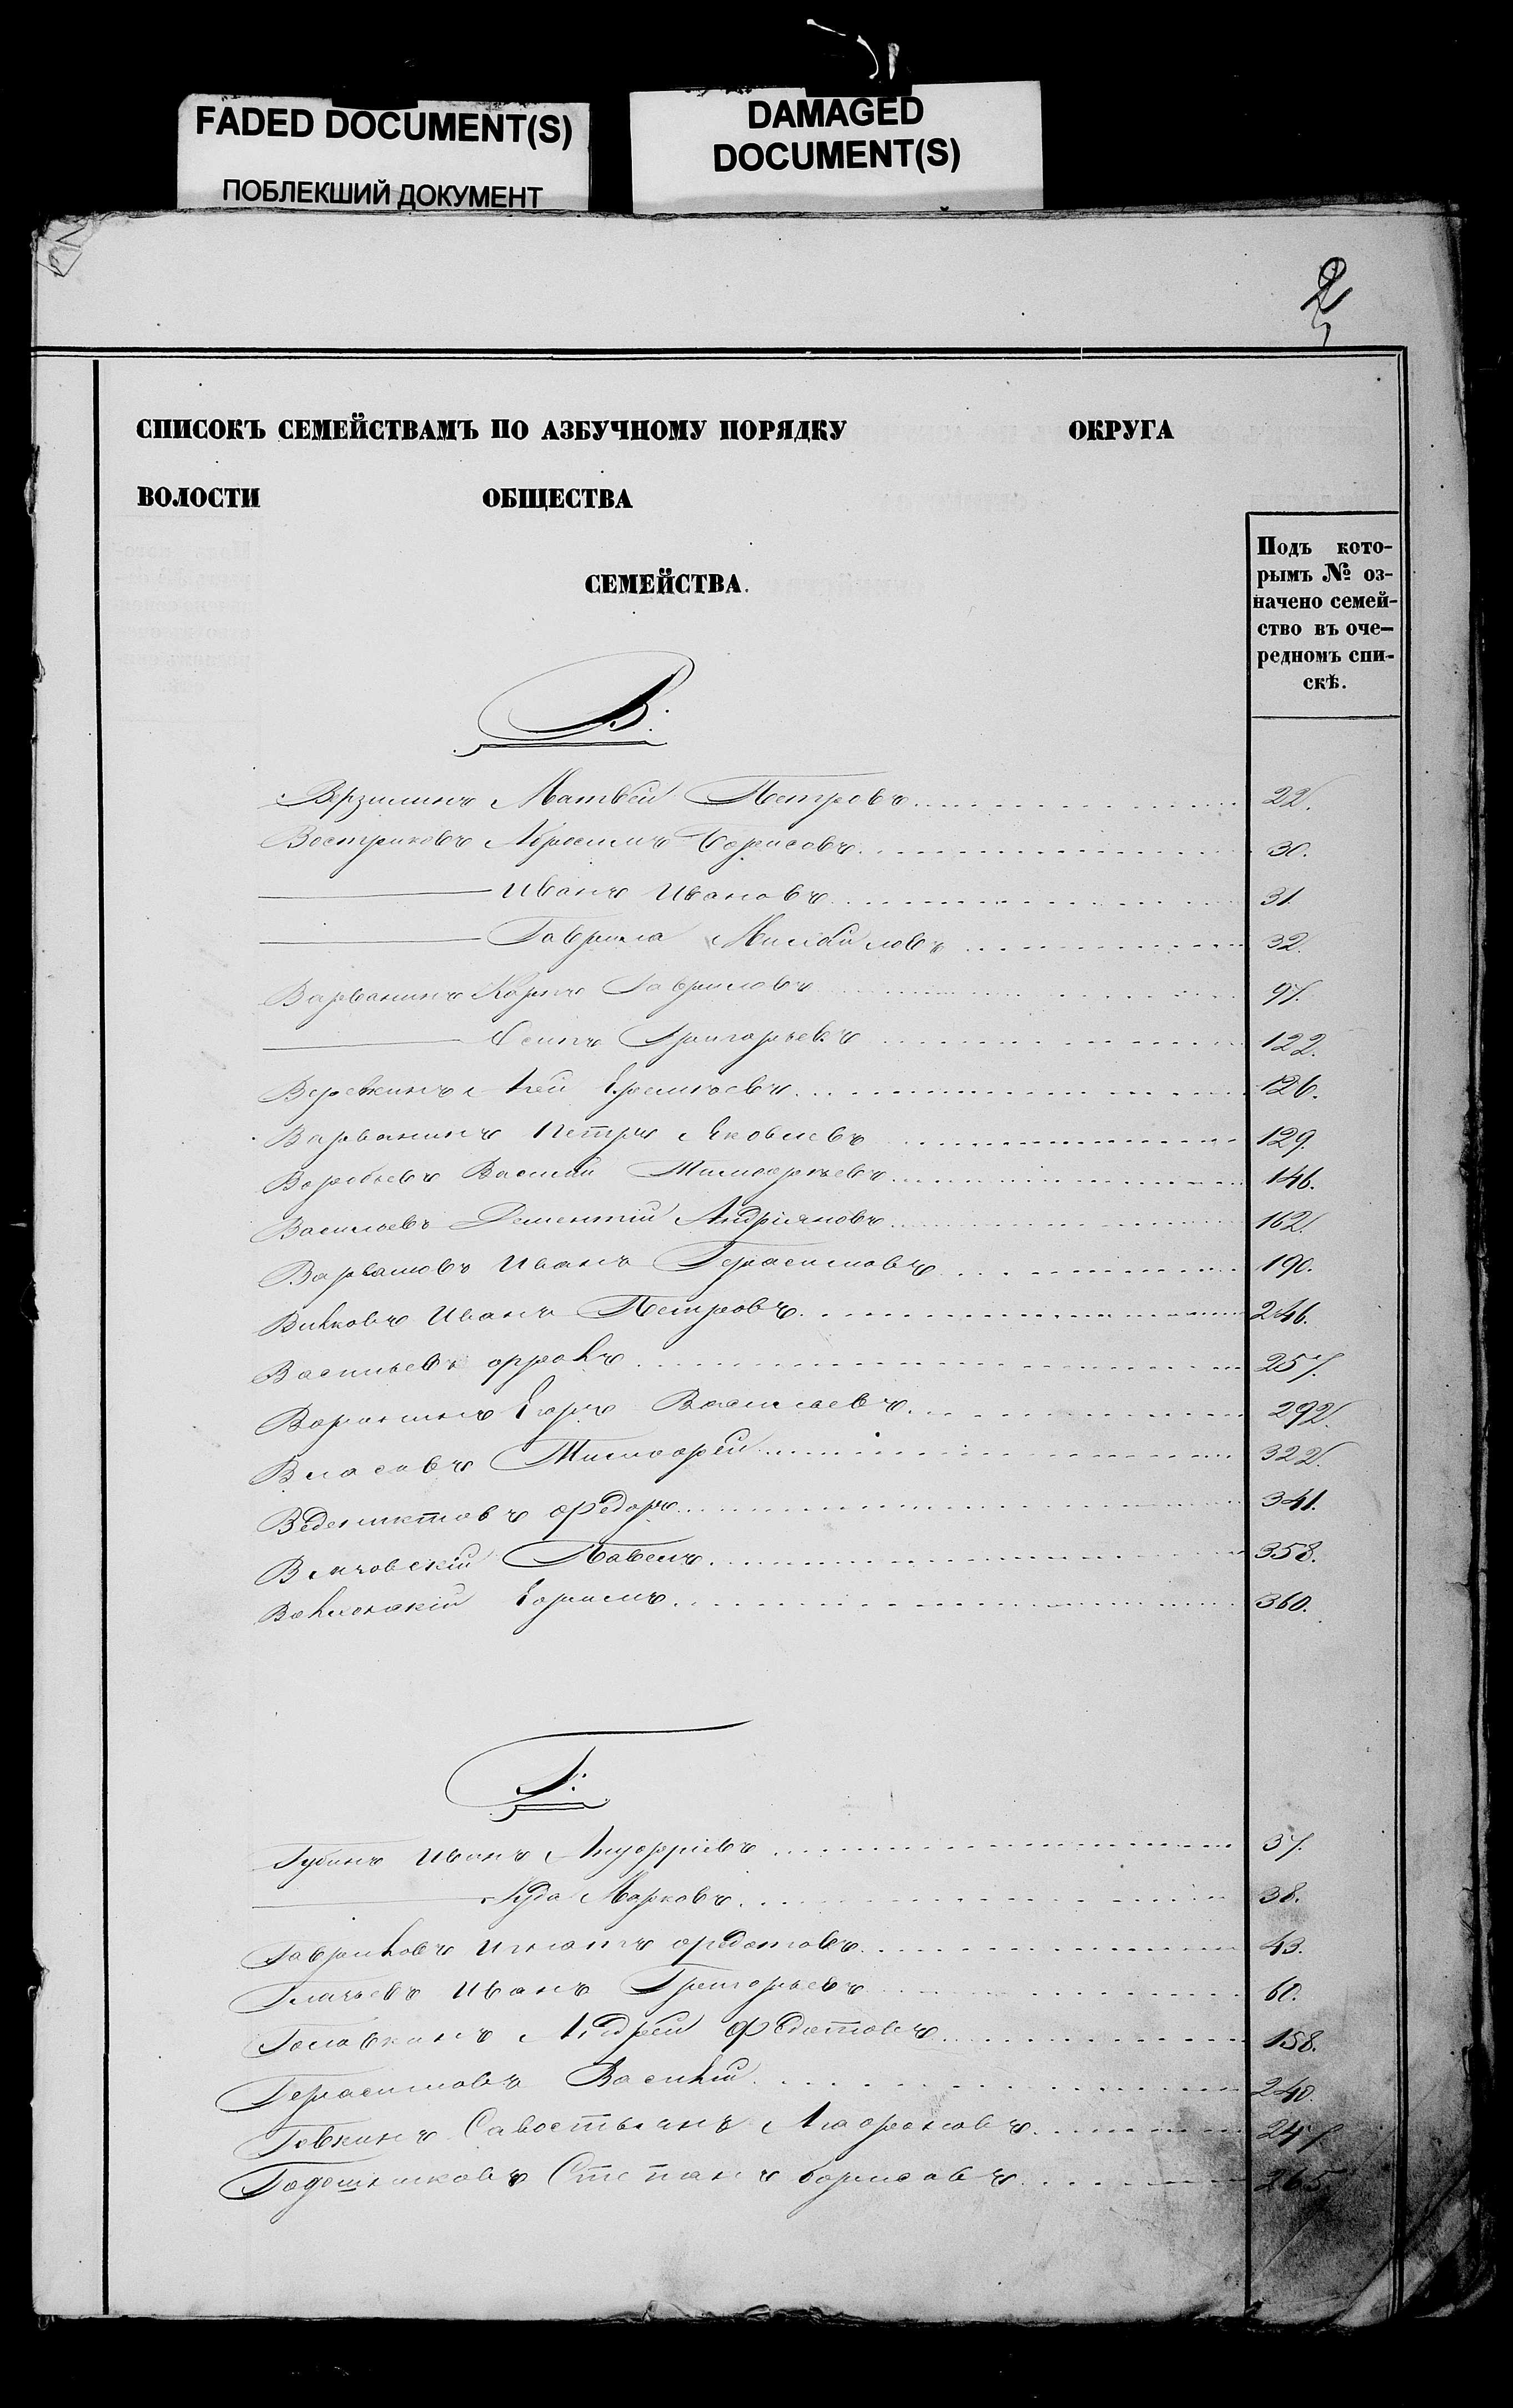 FADED DOCUMENT(S)
ПОБЛЕКШИЙ ДОКУМЕНТ
DAMAGED
DOCUMENT(S)
2
СПИСОКЪ СЕМЕЙСТВАМЪ ПО АЗБУЧНОМУ ПОРЯДКУ ОКРУГА
ВОЛОСТИ ОБЩЕСТВА
СЕМЕЙСТВА.
Подъ кото-
рымъ № оз-
начено семей-
ство въ оче-
редномъ спи-
скѣ.
В.
Верзилинъ Матвей Петровъ 22.
Востриковъ Абросимъ Борисовъ 30.
Иванъ Ивановъ 31.
Гаврила Михайловъ 32.
Варванинъ Карпъ Гавриловъ 97.
Осипъ Григорьевъ 122.
Веревкинъ Еремѣевъ 126.
Варванинъ Петръ Яковлевъ 129.
Воробьевъ Василий Тимофеевъ 146.
Васильевъ Дементий Андріяновъ 162.
Иванъ Герасимовъ 190.
Иванъ Петровъ 246.
Васильевъ 257.
Воронинъ Егоръ Васильевъ 292.
Власовъ Тимофей 322.
Веденихтовъ Федоръ 341.
Павелъ 358.
360.
Г.
Губинъ Иванъ Ануфріевъ 37.
Іуда Марковъ 38.
Игнатъ Федотовъ 43.
Иванъ Григорьевъ 60.
Головкинъ Андрей Федотовъ 158.
Герасимовъ Василий 240.
Савостьянъ 247.
Степанъ Борисовъ 265.